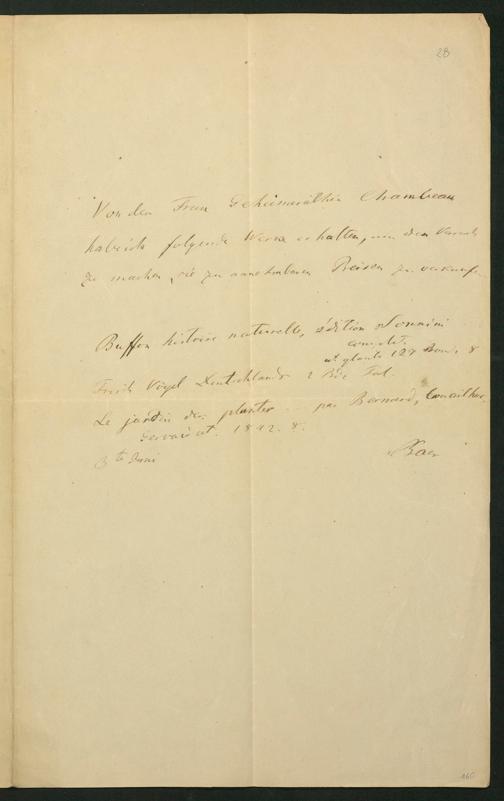 28
Von der Frau Geheimräthin Chambeau
habe ich folgende Werke erhalten, um den Versuch
zu machen, sie zu annehmbaren Preisen zu verkaufen.
Buffon histoire naturelle, édition Sonnini
complet.
127 8
Frisch Vögel Deutschlands 2 Bde Fol.
Le jardin des plantes par Bernard, Couailhac,
Gervais et. 1842. 8.
3te Juni
Baer